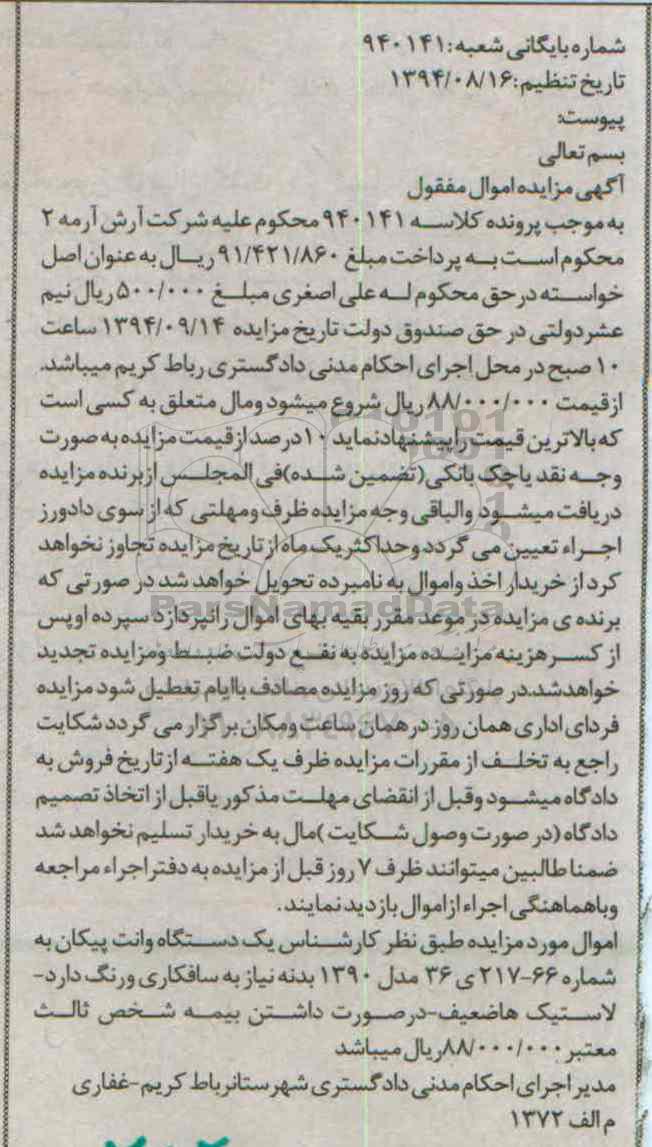 شماره بایگانی شعبه: ۹۴۰۱۴۱
تاریخ تنظیم: ۱۳۹۴/۰۸/۱۶
پیوست:
بسم تعالی
آگهی مزایده اموال مفقول
به موجب پرونده کلاسه ۹۴۰۱۴۱ محکوم علیه شرکت آرش آرمه ۲
محکوم است به پرداخت مبلغ ۹۱/۴۲۱/۸۶۰ ریال به عنوان اصل
خواسته در حق محکوم له علی اصغری مبلغ ۵۰۰/۰۰۰ ریال نیم
عشر دولتی در حق صندوق دولت تاریخ مزایده ۱۳۹۴/۰۹/۱۴ ساعت
۱۰ صبح در محل اجرای احکام مدنی دادگستری رباط کریم میباشد.
از قیمت ۸۸/۰۰۰/۰۰۰ ریال شروع میشود ومال متعلق به کسی است
که بالاترین قیمت را پیشنهاد نماید ۱۰ درصد از قیمت مزایده به صورت
وجه نقد یا چک بانکی (تضمین شده) فی المجلس از برنده مزایده
دریافت میشود والباقی وجه مزایده ظرف ومهلتی که از سوی دادورز
اجراء تعیین می گردد وحداکثر یک ماه از تاریخ مزایده تجاوز نخواهد
کرد از خریدار اخذ واموال به نامبرده تحویل خواهد شد در صورتی که
برنده ی مزایده در موعد مقرر بقیه بهای اموال را نپردازد سپرده او پس
از کسر هزینه مزایده مزایده به نفع دولت ضبط ومزایده تجدید
خواهدشد.در صورتی که روز مزایده مصادف باایام تعطیل شود مزایده
فردای اداری همان روز در همان ساعت ومکان برگزار می گردد شکایت
راجع به تخلف از مقررات مزایده ظرف یک هفته از تاریخ فروش به
دادگاه میشود وقبل از انقضای مهلت مذکور یاقبل از اتخاذ تصمیم
دادگاه (در صورت وصول شکایت )مال به خریدار تسلیم نخواهد شد
ضمنا طالبین میتوانند ظرف ۷ روز قبل از مزایده به دفتر اجراء مراجعه
وباهماهنگی اجراء از اموال بازدید نمایند.
اموال مورد مزایده طبق نظر کارشناس یک دستگاه وانت پیکان به
شماره ۶۶-۲۱۷ ی ۳۶ مدل ۱۳۹۰ بدنه نیاز به سافکاری ورنگ دارد-
لاستیک هاضعیف-درصورت داشتن بیمه شخص ثالث
معتبر ۸۸/۰۰۰/۰۰۰ریال میباشد
مدیر اجرای احکام مدنی دادگستری شهرستانرباط کریم-غفاری
م الف ۱۳۷۲
ParsNamadData